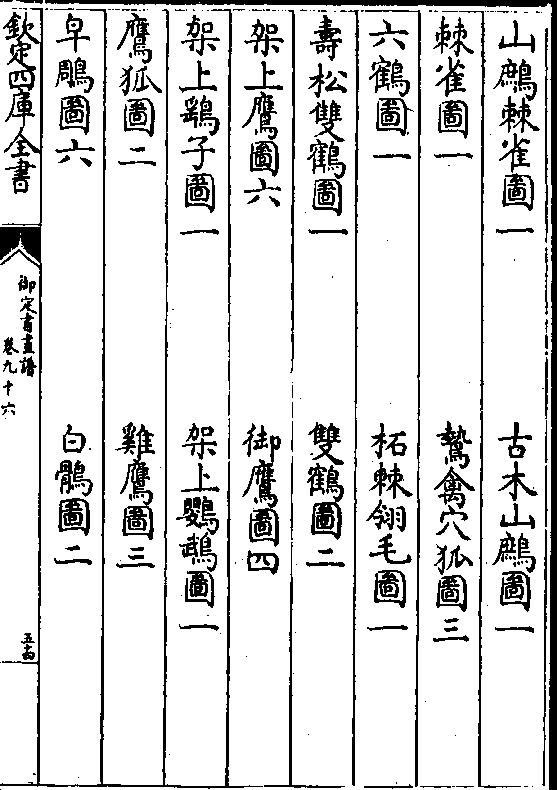 山鷓棘雀圖一　古木山鷓圖一
棘雀圖一　鷙禽穴狐圖三
六鶴圖一　柘棘翎毛圖一
壽松雙鶴圖一　雙鶴圖二
架上鷹圖六　御鷹圖四
架上鷂子圖一　架上鸚鵡圖一
鷹狐圖二　雞鷹圖三
皁鵰圖六　白鶻圖二
欽定四庫全書
御定書畫譜
卷九十六